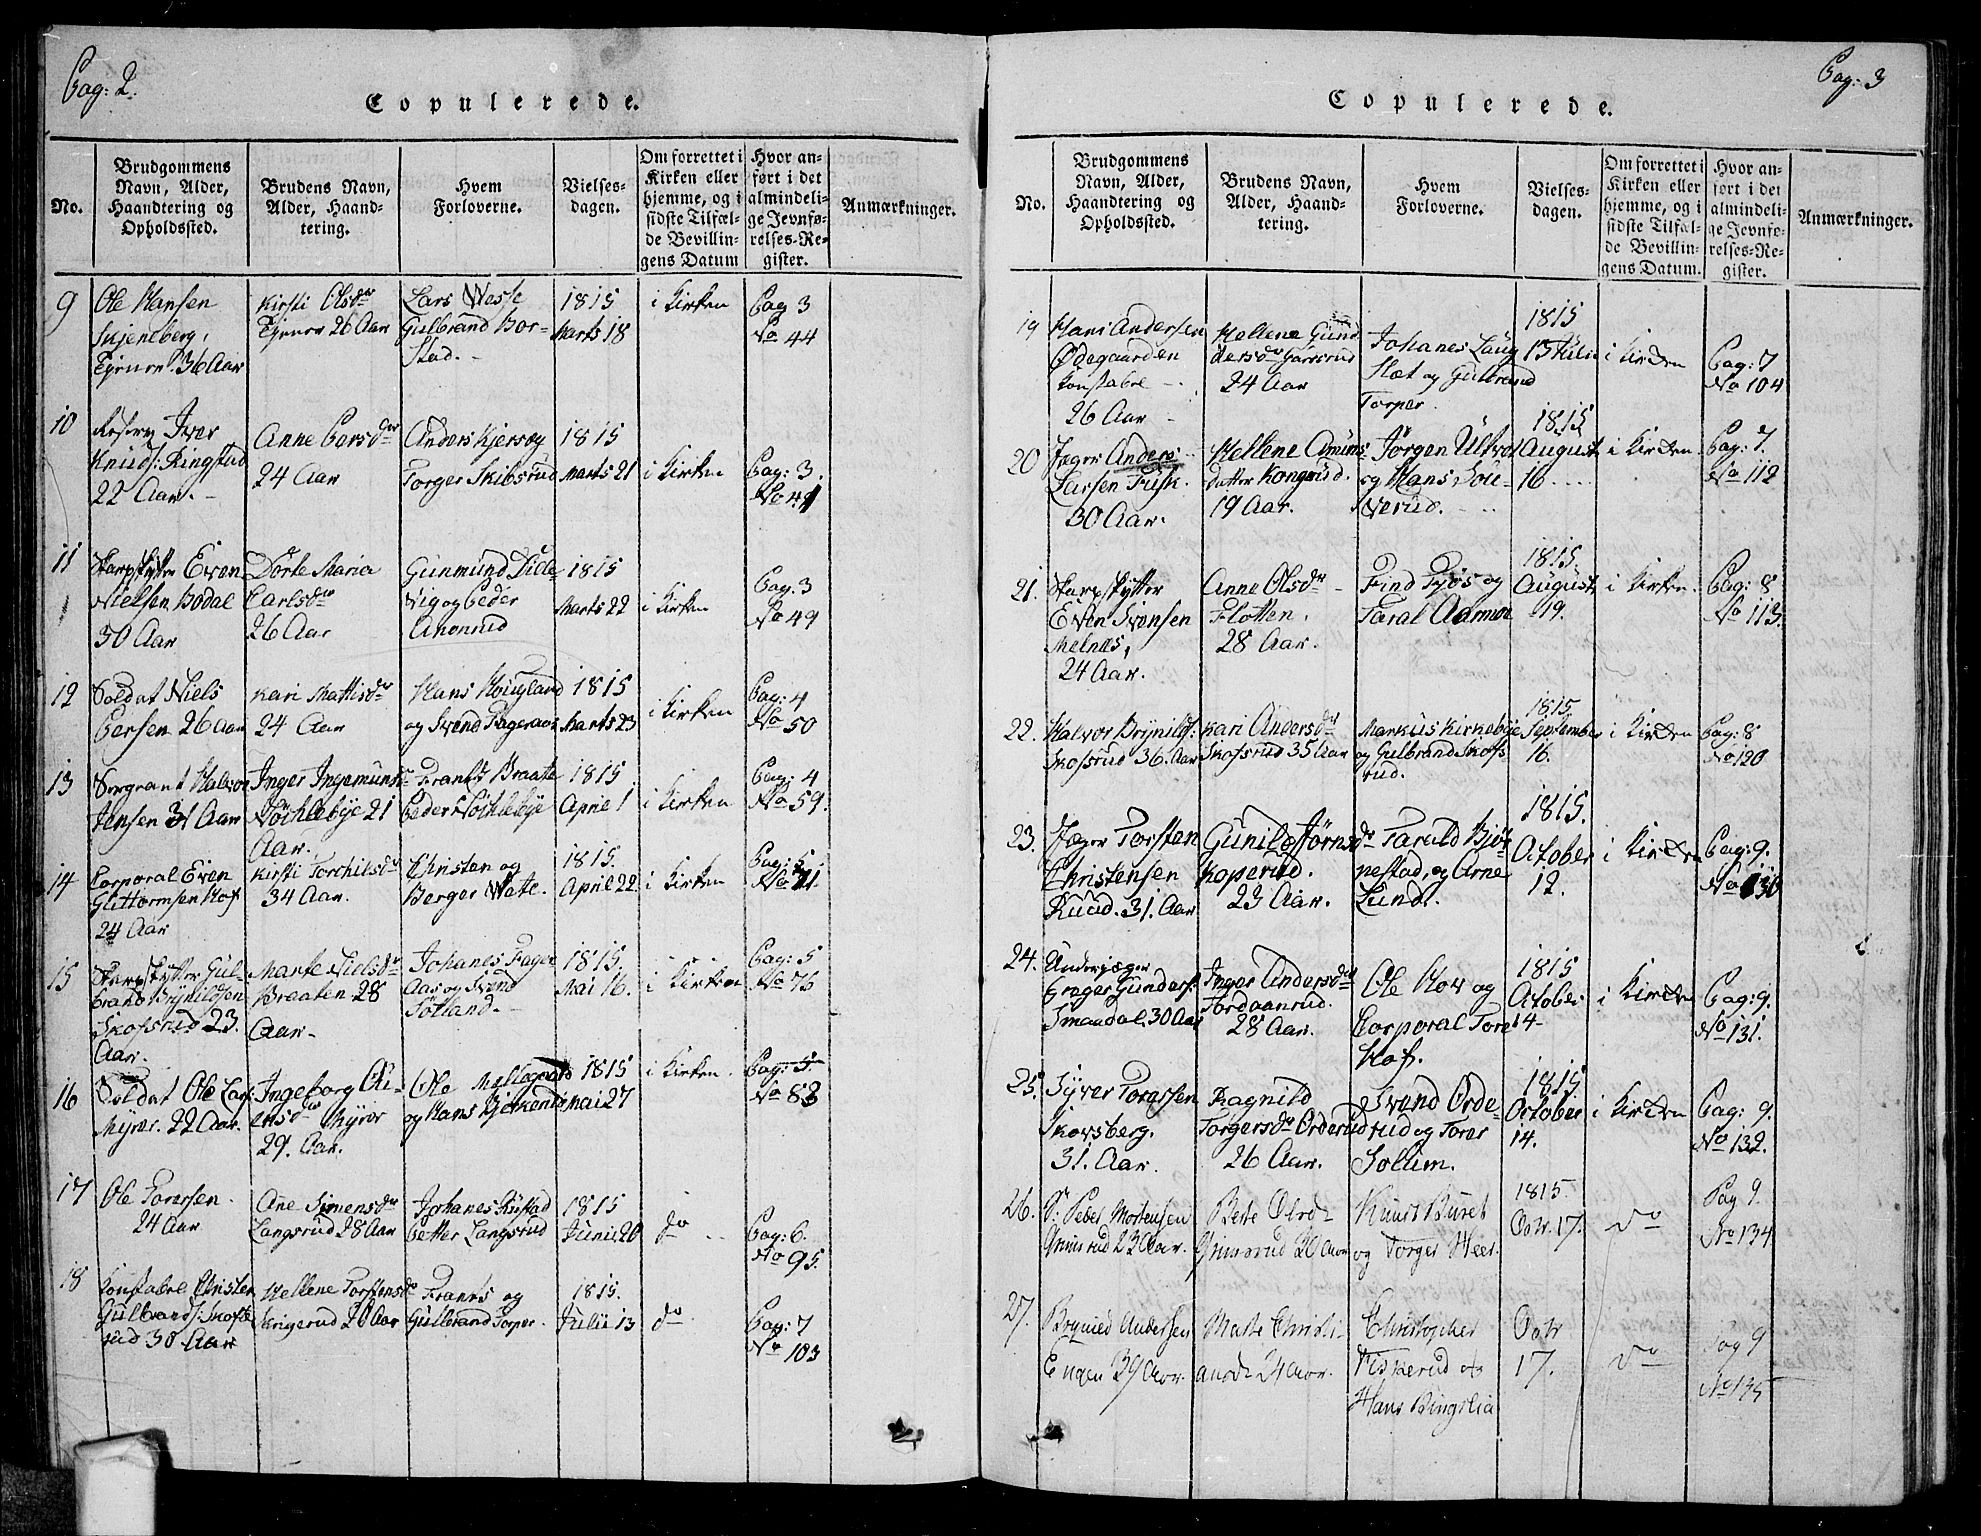 Pag: 2.
Copulerede.
No.
Brudgommens
Navn, Alder,
Haandtering og
Opholdssted.
Brudens Navn,
Alder, Haand-
tering.
Hvem
Forloverne.
Vielses-
dagen.
Om forrettet i
Kirken eller
hjemme, og i
sidste Tilfæl-
de Bevillin-
gens Datum
Hvor an-
ført i det
almindeli-
ge Jevnfø-
relses-Re-
gister.
Anmærkninger.
9
Ole Hansen
Skjeneberg,
Tjener 36 Aar
Kirsti Olsdr
Tjener 26 Aar
Lars Wesse
Gulbrand Bor-
Stad.
1815
Marts 18
i Kirken
Pag 3
No 44
10
Iver
Knuds: Ringstad
22 Aar.
Anne Persdr
24 Aar
Anders Kjersøg
Torger Skibsrud
1815
Marts 21
i Kirken
Pag: 3.
11
Skarpskytter Even
Nielsen Bodal
30 Aar
Dorte Maria
Carlsdr
26 Aar
Gunmund
Vig og Peder
Anonrud
1815
Marts 22
i Kirken
Pag: 3
No 49
12
Soldat Niels
Persen 26 Aar
Kari Mattisdr
24 Aar
Hans Hougland
og Svend Fageraas
1815
Marts 23
i Kirken
Pag: 4
No 50
13
Sergeant Halvor
Jensen 31 Aar
Inger Ingemunds
21
Aar.
Frants Braate
Peder
1815
April 1
i Kirken
Pag: 4
No 59.
14
Corporal Even
Guttormsen Hof
24 Aar
Kirsti Torchilsdr
34 Aar.
Christen og
Berger Wete.
1815.
April 22
i Kirken
Pag: 5
No 71.
15
Skarpskytter Gul-
brand Brynildsen
Skofsrud 23.
Aar.
Marte Nielsdr
Braaten 28
Aar-
Johanes Fager
Aas og Svend
Totland.
1815.
Mai 16.
i Kirken
Pag: 5
No 76
16
Soldat Ole Lars:
Myrer. 22 Aar.
Ingeborg Ol-
ensdr Myrer
29. Aar.
Ole Mellegaard
og Hans Bjerkende
1815
Mai 27
i Kirken.
Pag: 5
No 83
17
Ole Torersen.
24 Aar
Ane Simensdr
Langsrud 28 Aar
Johanes
Petter Langsrud
1815
Junii 20
do
Pag: 6.
No 95.
18
Konstabel Christen
Gulbrands: Skofs
rud 30 Aar
Hellene Torstensdr
Krigerud 20 Aar
Frants og
Gulbrand Torper.
1815.
Julii 13
do
Pag: 7
No 103
Pag: 3
Copulerede.
No.
Brudgommens
Navn, Alder,
Haandtering og
Opholdssted.
Brudens Navn,
Alder, Haand-
tering.
Hvem
Forloverne.
Vielses-
dagen.
Om forrettet i
Kirken eller
hjemme, og i
sidste Tilfæl-
de Bevillin-
gens Datum.
Hvor an-
ført i det
almindeli-
ge Jevnfø-
relses-Re-
gister.
Anmærkninger.
19
Hans Andersen
Ødegaarden
Konstabel
26 Aar
Hellene Gund
dersdr Garsrud
24 Aar
Johanes Laug
Slet og Gulbrand
Torper.
1815
13 Julii
i Kirken
Pag: 7
No 104
20
Jæger Anders
Larsen Fusk.
30 Aar.
Hellene Amuns
datter Kongsrud.
19 Aar.
Jørgen
og Hans Sou-
nerud.
1815
August
16
i Kirken
Pag: 7.
No 112
21.
Skarpskytter
Even Svensen
Melnes,
24 Aar.
Anne Olsdr
Flotten.
28 Aar.
Find Fjøs og
Taral Aamot
1815.
August
19.
i Kirken.
Pag: 8
No 113.
22.
Halvor Brynilds:
Skofsrud 36. Aar
Kari Andersdr
Skofsrud 35 Aar
Markus Kirkebye
og Gulbrand Skofs
rud.
1815.
September
16.
i Kirken
Pag: 8
No 120
23.
Jæger Torsten
Christensen
Ruud. 31. Aar
Gunild Jørnsdr
Koperud.
23 Aar.
Tarald Bjør-
nestad, og Arne
Lund.
1815.
October
12.
i Kirken
Pag: 9.
No 130
24.
Underjæger
Erager Gunders:
Smaadal. 30 Aar
Inger Andersdr
Tordaanrud.
28 Aar.
Ole Hov og
Corporal Tore
Hof.
1815
October
14-
i Kirken
Pag: 9.
No 131.
25.
Syver Torersen
Skovsberg.
31. Aar.
Ragnild
Torgersdr Orderud
26 Aar.
Svend Orde-
rud og Torer
Sollim.
1815
October
14.
i Kirken
Pag: 9.
No 132.
26.
S: Peder Mortensen
Grimsrud 23 Aar.
Berte Olsdr
Grimsrud 20 Aar
Knud Buret
og Torger Heer.
1815.
Octr. 17.
do
Pag 9.
No 134
27.
Brynild Andersen
Engen 39 Aar.
Marte Christi
ansdr 24 Aar.
Christopher
Fiskerud og
Hans Bingslia
Octr
17.
do
Pag 9
No 135